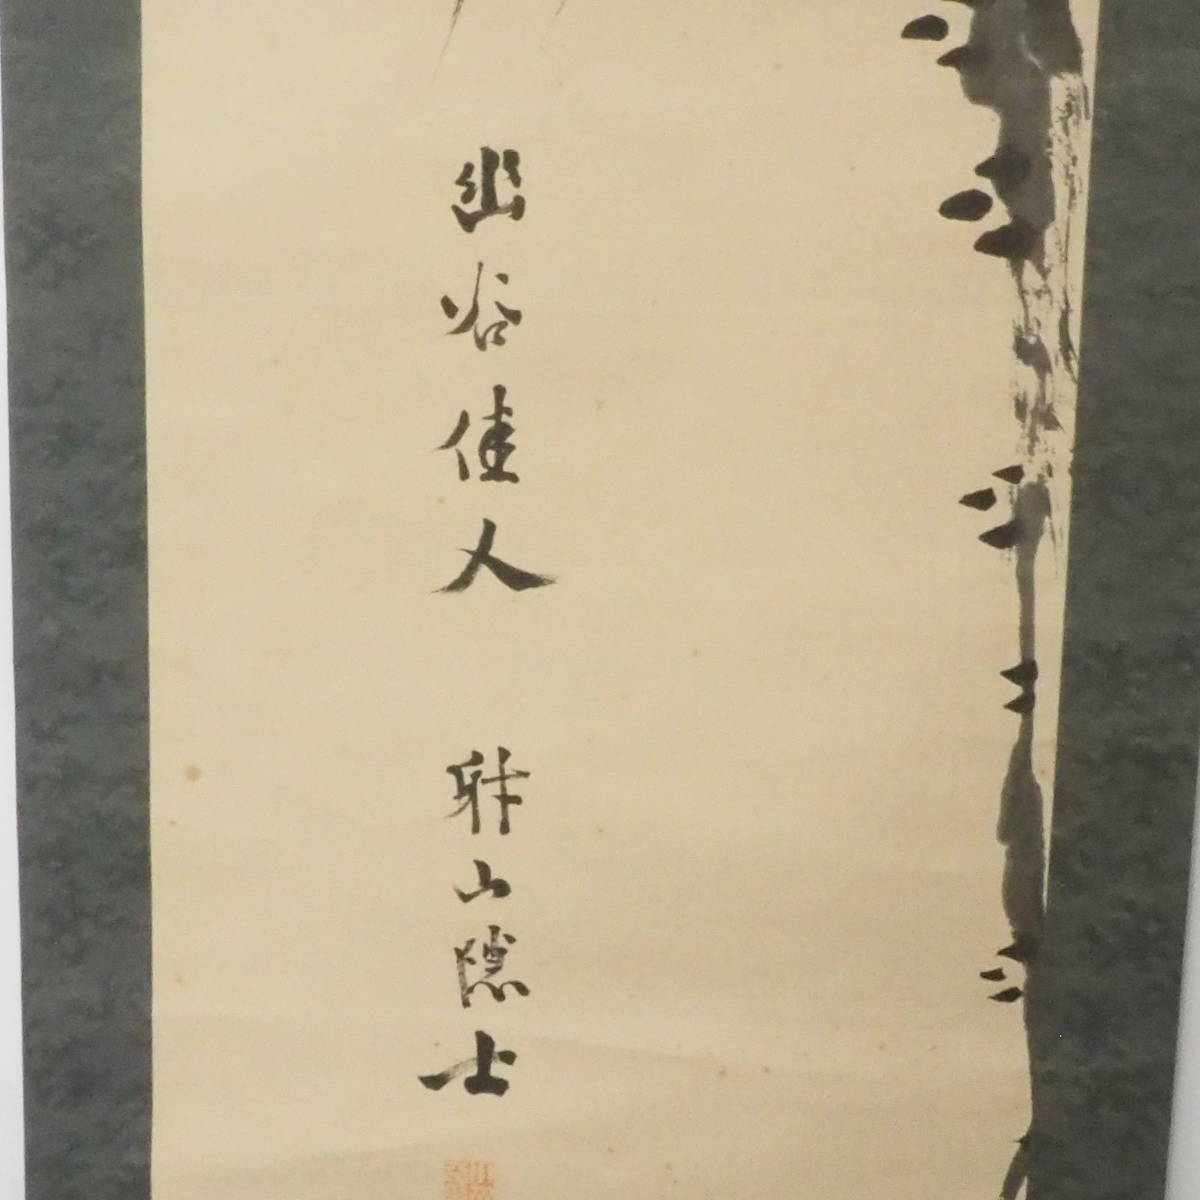 幽谷佳人
山隠士